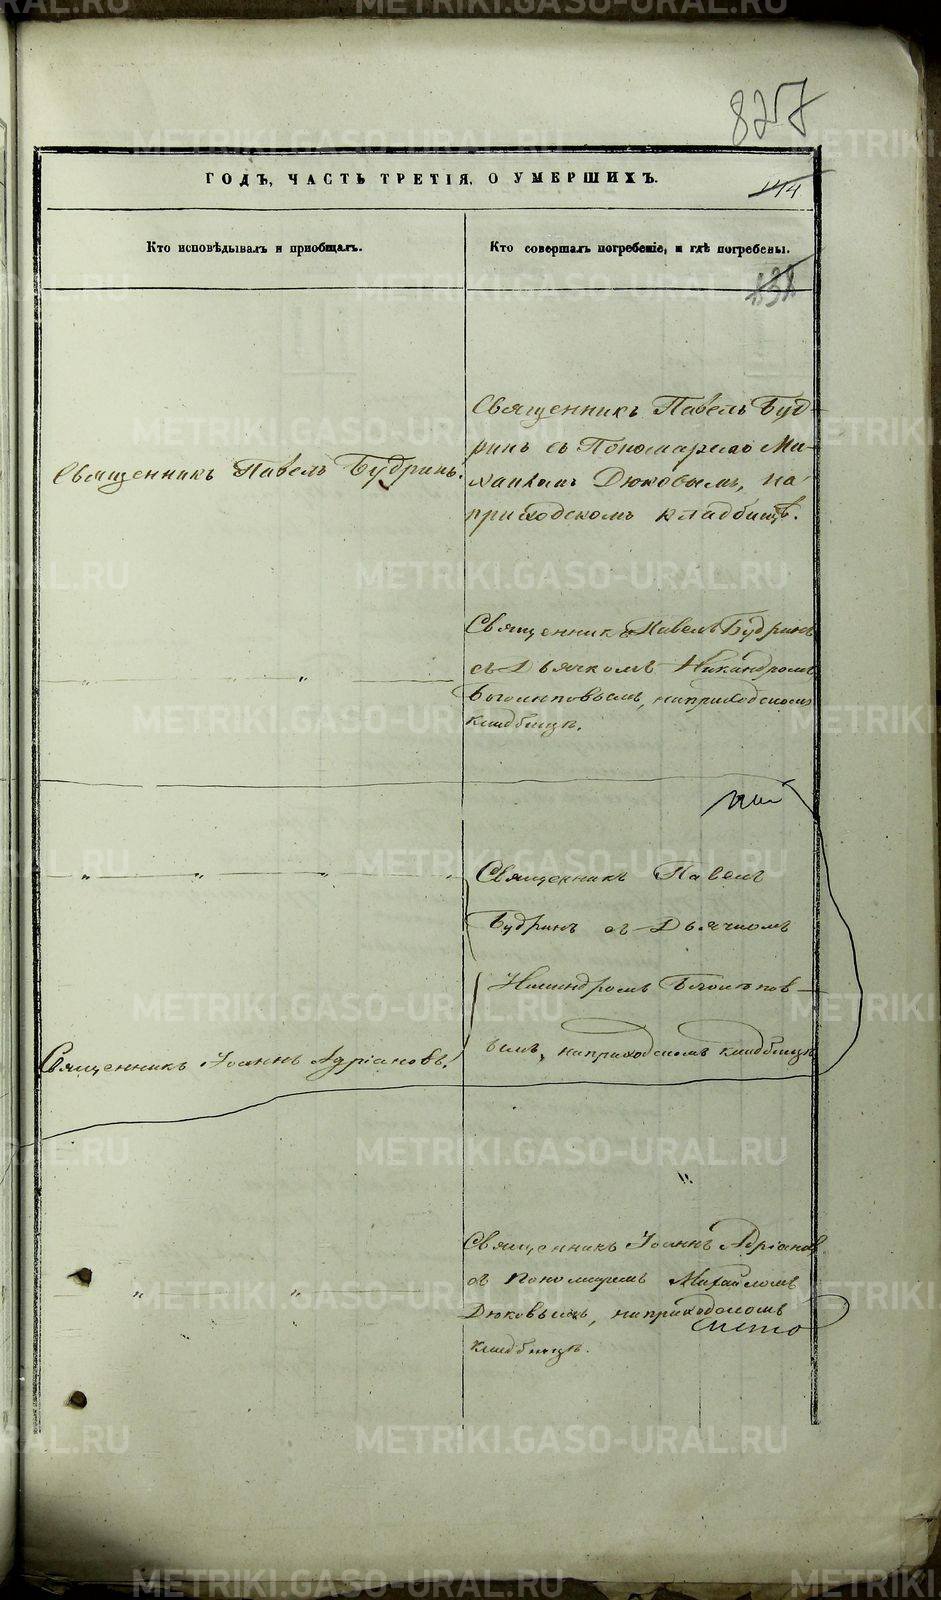 827
ГОДЪ, ЧАСТЬ ТРЕТІЯ, О УМЕРШИХЪ.
144
Кто исповѣдывалъ и пріобщалъ.
Кто совершалъ погребеніе, и гдѣ погребены.
138
Священникъ Павелъ Будринъ.
Священникъ Павелъ Буд-
ринъ съ Пономаремъ Ми-
хаиломъ Дюковымъ, на
приходскомъ кладбищѣ.
Священникъ Павелъ Будринъ
съ Дьячкомъ Никандромъ
на приходскомъ
кладбищѣ.
Священникъ Павелъ
Будринъ съ Дьячкомъ
Никандромъ
вымъ, на приходскомъ кладбищѣ
Священникъ Іоаннъ Адріановъ.
Священникъ Іоаннъ Адріановъ
съ пономаремъ Михайломъ
Дюковымъ, на приходскомъ
кладбищѣ.
METRIKI.GASO-URAL.RU